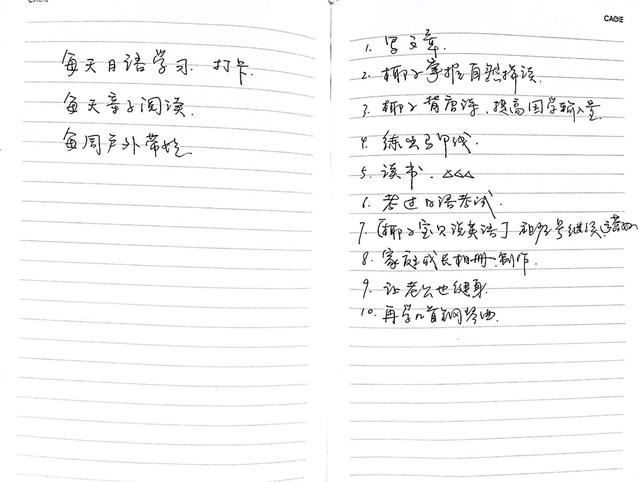 CAGIE
每天日语学习 打卡.
每天亲子阅读.
每周户外带娃
CAGIE
1. 写文章.
2. 椰子掌握自然拼读.
3. 椰子背唐诗,提高国学输入量.
4. 练出马甲线.
5. 读书. △△△
6. 考过日语考试.
7. 「椰子宝贝说英语」视频号继续
8. 家庭成长相册.制作.
9. 让老公也健身.
10. 再学几首钢琴曲.